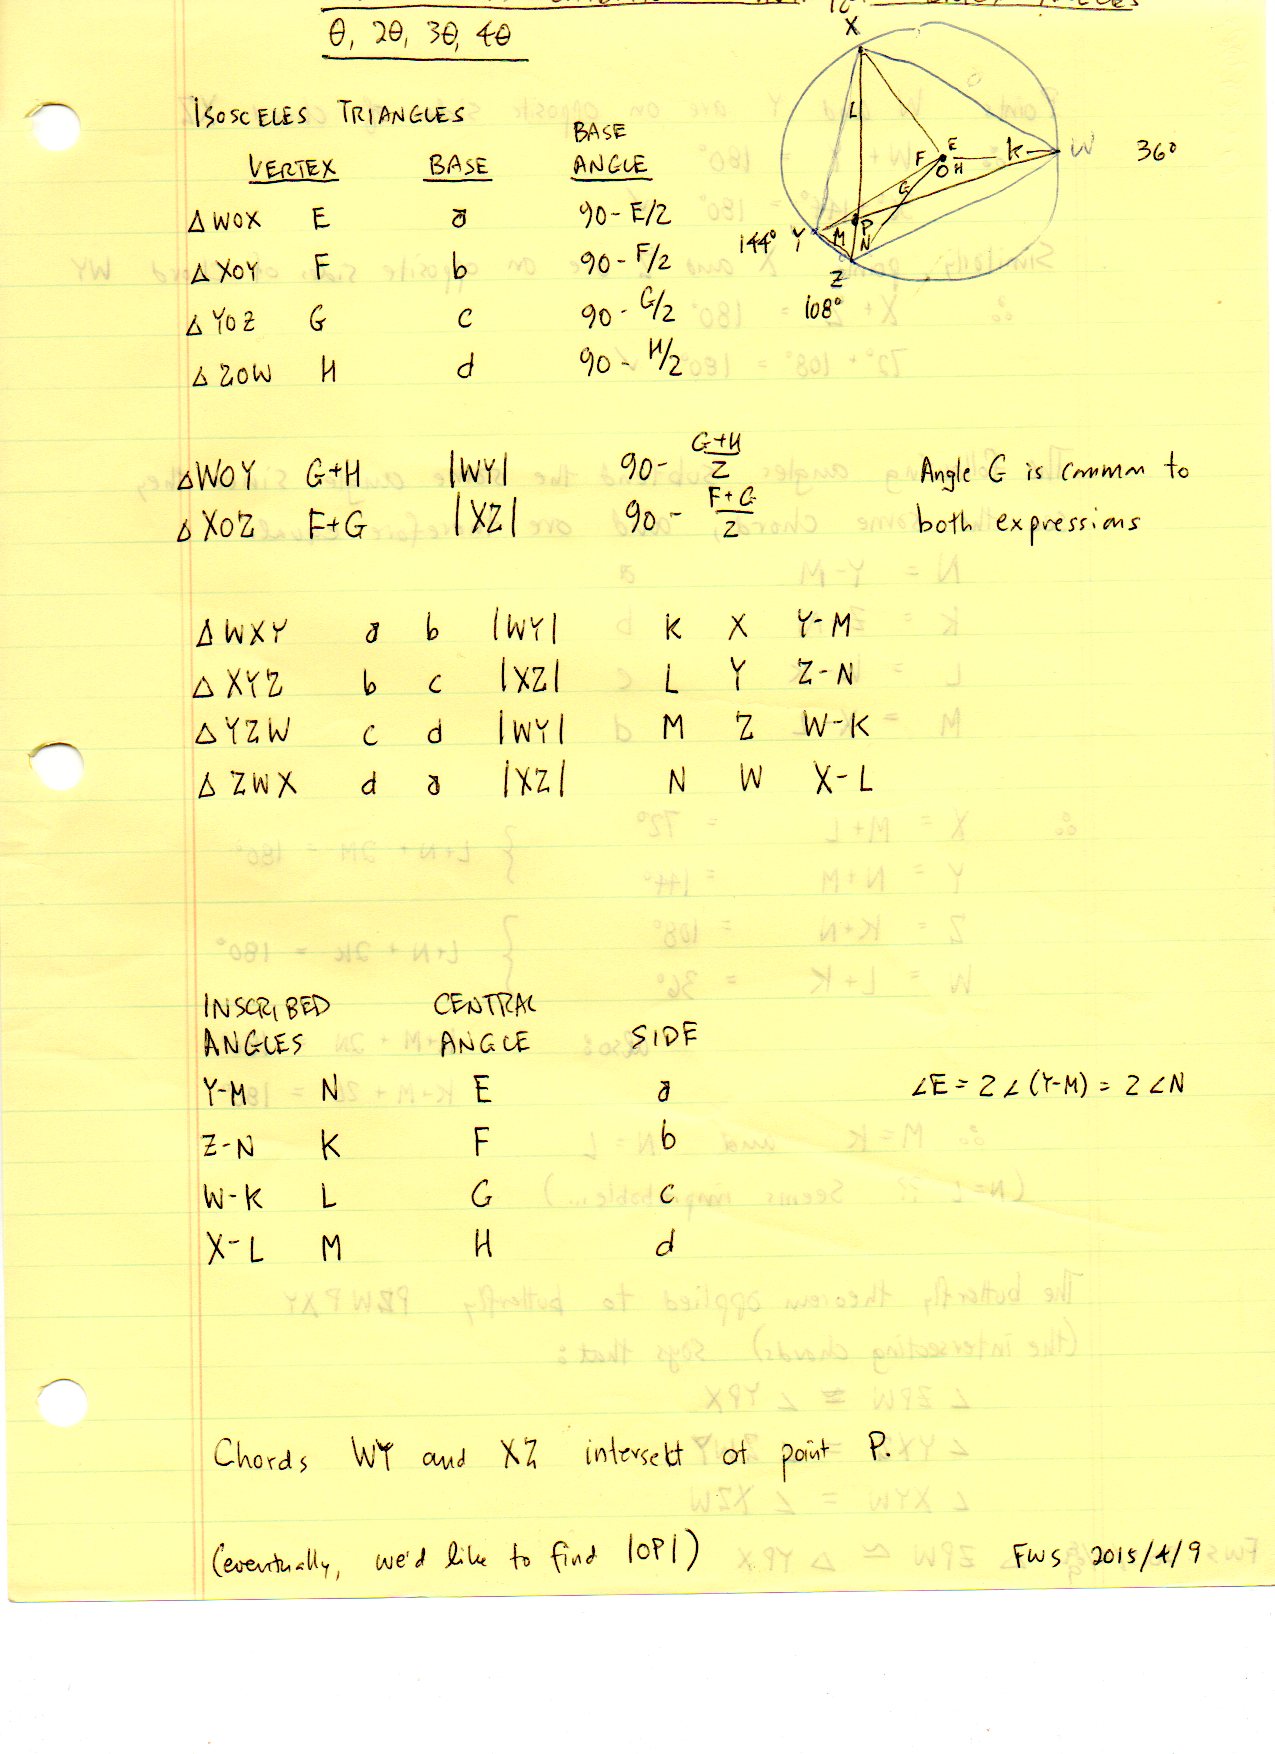 θ, 2θ, 3θ, 4θ
X
ISOSCELES TRIANGLES
VERTEX BASE BASE ANGLE
Δ WOX E a 90 - E/2
Δ XOY F b 90 - F/2
Δ YOZ G c 90 - G/2
Δ ZOW H d 90 - H/2
L
F E K W 36°
O H
G
144° Y M P
N
Z
108°
Δ WOY G+H |WY| 90 - G+H/2 Angle G is common to
Δ XOZ F+G |XZ| 90 - F+G/2 both expressions
Δ WXY a b |WY| K X Y-M
Δ XYZ b c |XZ| L Y Z-N
Δ YZW c d |WY| M Z W-K
Δ ZWX d a |XZ| N W X-L
INSCRIBED CENTRAL
ANGLES ANGLE SIDE
Y-M N E a ∠E = 2∠(Y-M) = 2∠N
Z-N K F b
W-K L G c
X-L M H d
Chords WY and XZ intersect at point P.
(eventually, we'd like to find |OP|) FWS 2015/4/9